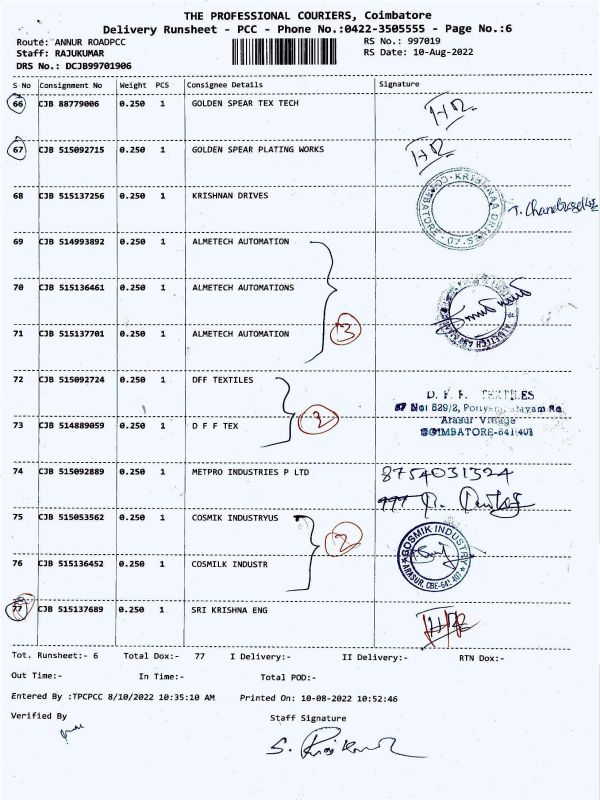 THE PROFESSIONAL COURIERS, Coimbatore
Delivery Runsheet - PCC - Phone No.:0422-3505555 - Page No.:6
Route: ANNUR ROADPCC RS No.: 997019
Staff: RAJUKUMAR RS Date: 10-Aug-2022
DRS No.: DCJB99701906
S No Consignment No Weight PCS Consignee Details Signature
66 CJB 88779006 0.250 1 GOLDEN SPEAR TEX TECH
67 CJB 515092715 0.250 1 GOLDEN SPEAR PLATING WORKS
68 CJB 515137256 0.250 1 KRISHNAN DRIVES
69 CJB 514993892 0.250 1 ALMETECH AUTOMATION
70 CJB 515136461 0.250 1 ALMETECH AUTOMATIONS
71 CJB 515137701 0.250 1 ALMETECH AUTOMATION
3
72 CJB 515092724 0.250 1 DFF TEXTILES
2
D. F. F. TEXTILES
Arasur Village
COIMBATORE-641 401
73 CJB 514889059 0.250 1 D F F TEX
74 CJB 515092889 0.250 1 METPRO INDUSTRIES P LTD 8754031324
75 CJB 515053562 0.250 1 COSMIK INDUSTRYUS
2
COSMIK INDUSTRY
ARASUR, CBE-641 407
76 CJB 515136452 0.250 1 COSMILK INDUSTR
77 CJB 515137689 0.250 1 SRI KRISHNA ENG
Tot. Runsheet:- 6 Total Dox:- 77 I Delivery:- II Delivery:- RTN Dox:-
Out Time:- In Time:- Total POD:-
Entered By :TPCPCC 8/10/2022 10:35:10 AM Printed On: 10-08-2022 10:52:46
Verified By Staff Signature